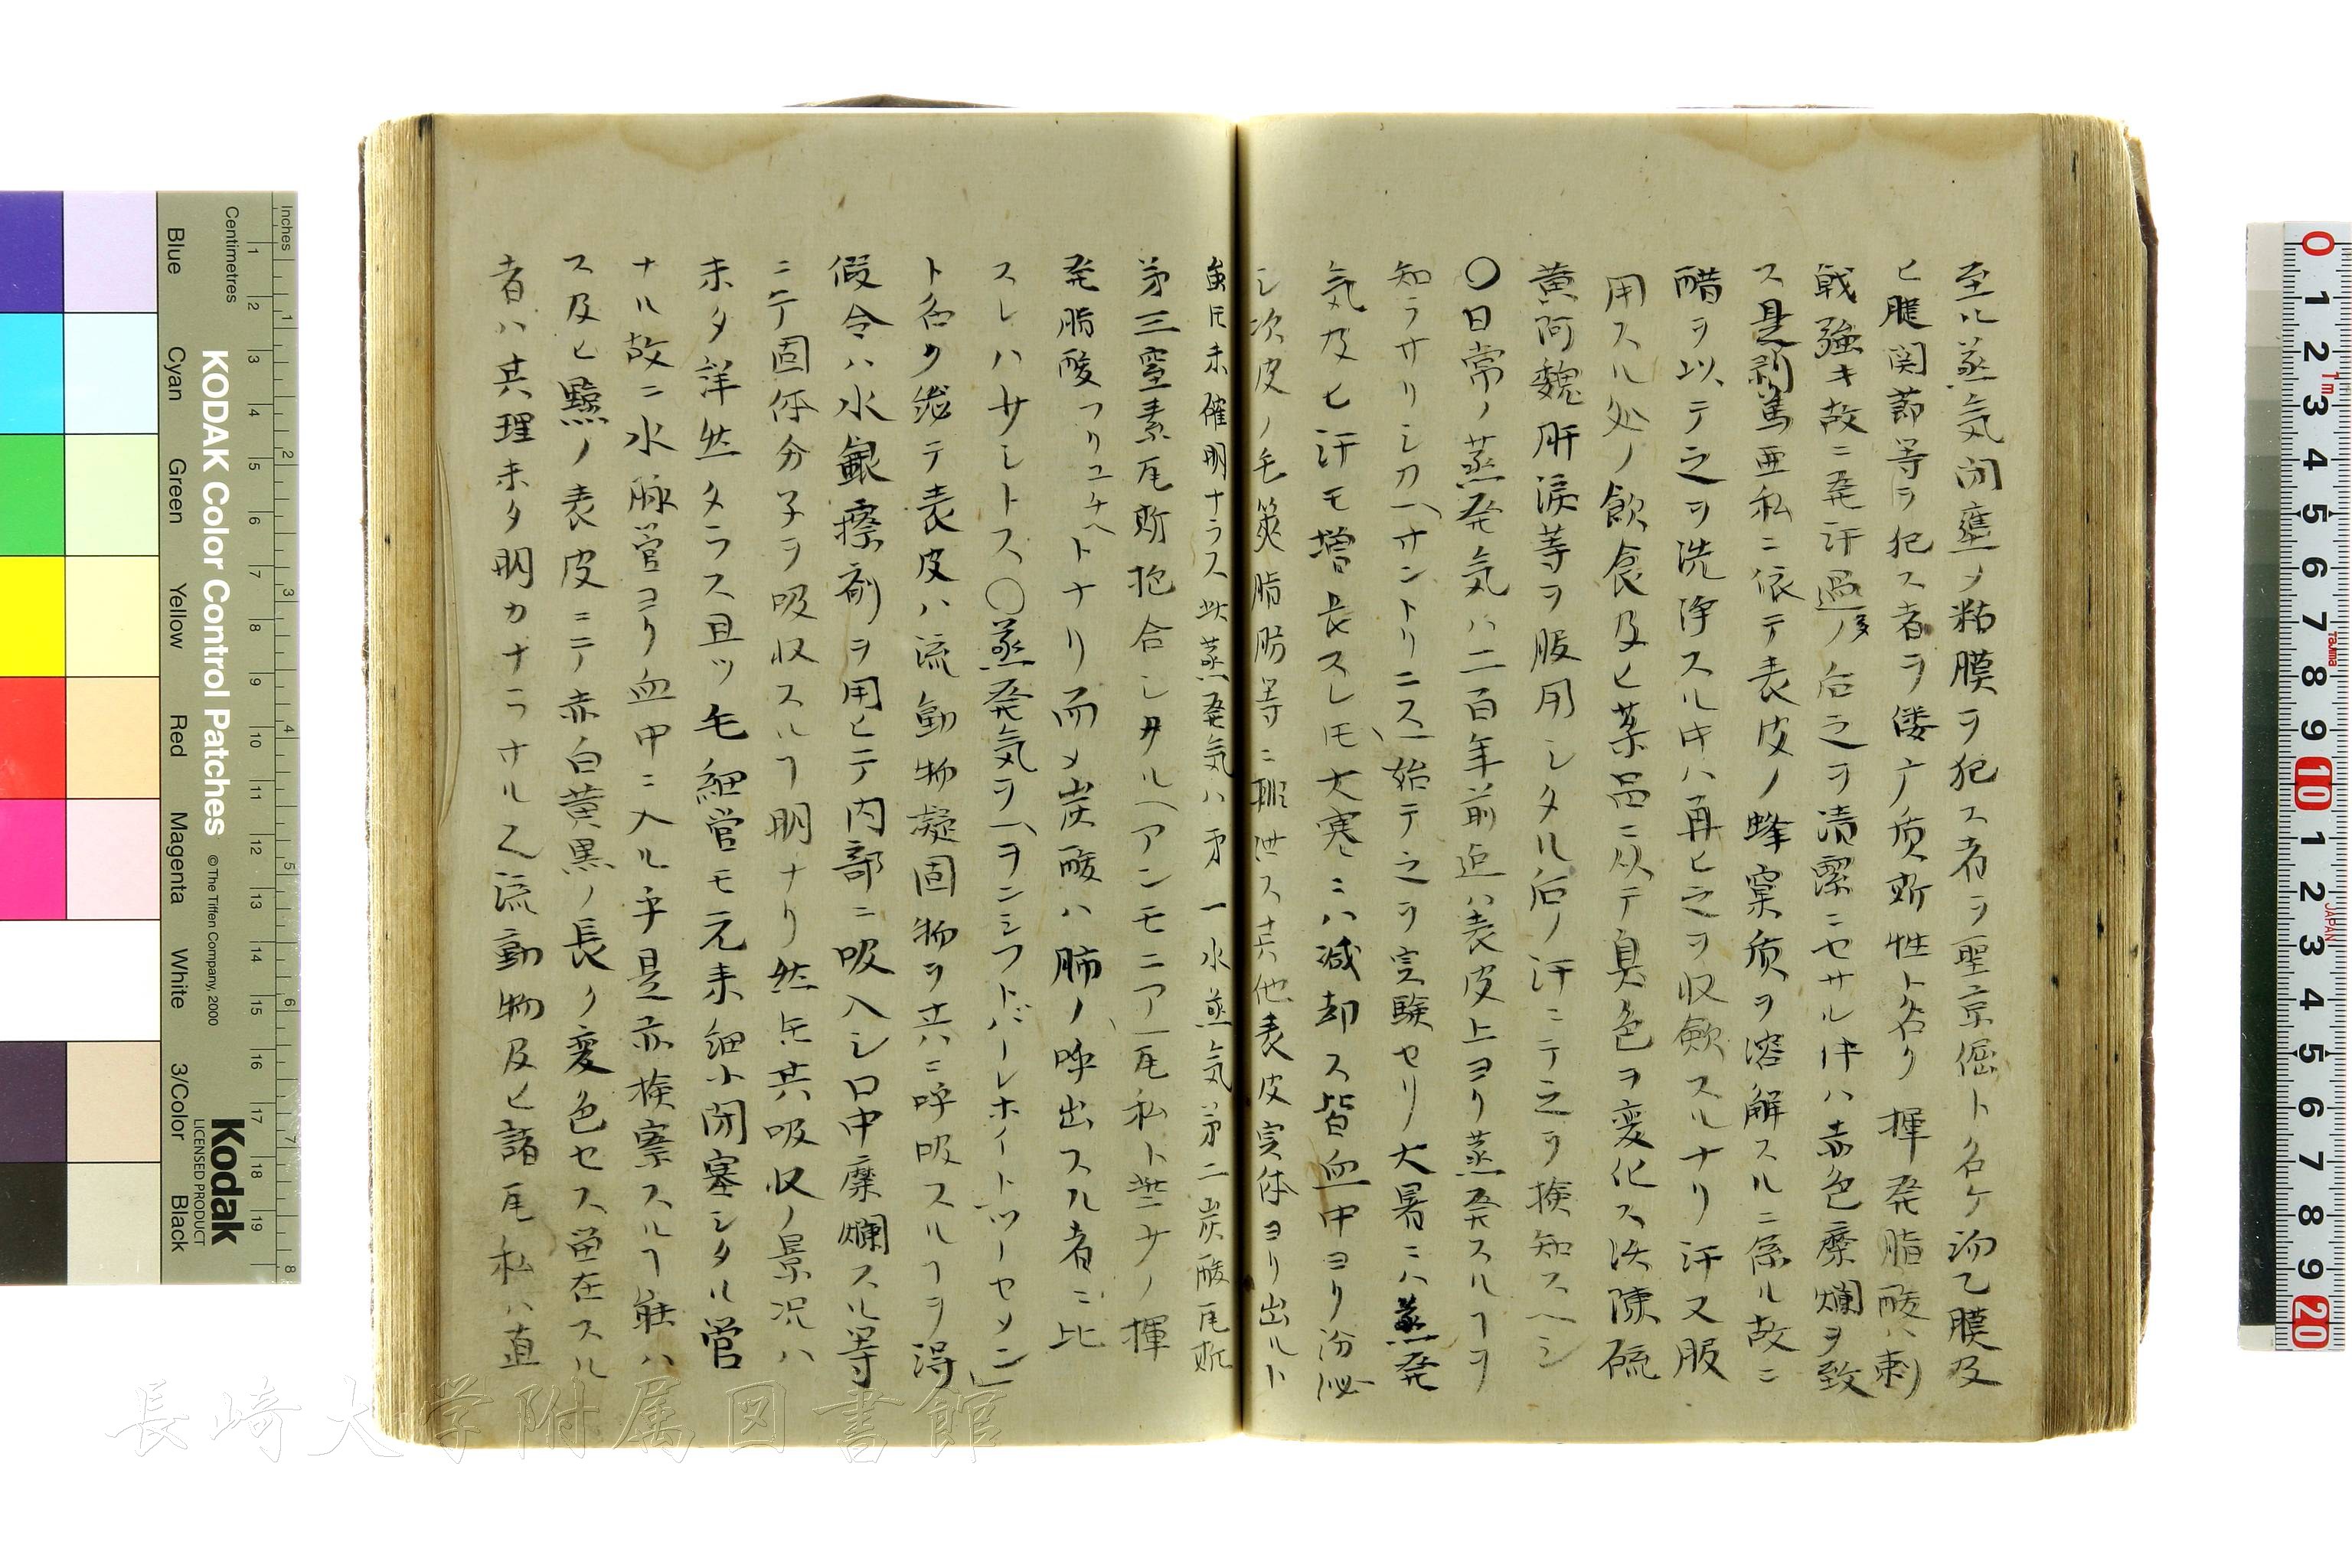 至ル蒸気閉塞メ粘膜ヲ犯ス者ヲ聖京倔ト名ケ沕乙膜及
ヒ腱関節等ヲ犯ス者ヲ僂广质斯性ト名ク揮発脂酸ハ刺
戟強キ故ニ発汗過多ノ后之ヲ清潔ニセサル件ハ赤色糜爛ヲ致
ス是剥篤亜私ニ依テ表皮ノ蜂窠质ヲ溶解スルニ係ル故ニ
醋ヲ以テ之ヲ洗浄スル件ハ再ヒ之ヲ収歛スルナリ汗又服
用スル処ノ飲食及ヒ薬品ニ从テ臭色ヲ変化ス沃陳硫
黄阿魏肝涙等ヲ服用シタル后ノ汗ニテ之ヲ検知スヘシ
〇日常ノ蒸発気ハ二百年前迠ハ表皮上ヨリ蒸発スルヿヲ
知ラサリシカ「サントリニス」始テ之ヲ実験セリ大暑ニハ蒸発
気及ヒ汗モ増長スレ𪜈大寒ニハ減却ス皆血中ヨリ汾泌
シ次皮ノ毛嚢脂肪等ニ排泄ス其他表皮実体ヨリ出ルト
虽𪜈未確明ナラス此蒸発気ハ第一水蒸気第二炭酸瓦斯
第三窒素瓦斯抱合シサル「アンモニア」瓦私ト無サノ揮
発脂酸フリユチヘトナリ而メ炭酸ハ肺ノ呼出スル者ニ比
スレハサシトス〇蒸発気ヲ「ヲンシフトバーレホイトツーセメン」
ト名ク総テ表皮ハ流動物凝固物ヲ共ニ呼吸スルヿヲ得
假令ハ水銀擦剤ヲ用ヒテ内部ニ吸入シ口中糜爛スル等
ニテ固体分子ヲ吸収スルヿ明ナリ然𪜈其吸収ノ景况ハ
未タ詳然タラス且ツ毛細管モ元来細小閉塞シタル管
ナル故ニ水脉管ヨリ血中ニ入ル乎是亦検察スルヿ能ハ
ス及ヒ黥ノ表皮ニテ赤白黄黒ノ長ク変色セス畄在スル
者ハ其理未タ明カナラサル乙流動物及ヒ諸瓦私ハ直
Inches
Centimetres
1 2 3 4 5 6 7 8 9 10 11 12 13 14 15 16 17 18 19
1 2 3 4 5 6 7 8
KODAK Color Control Patches
© The Tiffen Company, 2000
Kodak
LICENSED PRODUCT
Blue Cyan Green Yellow Red Magenta White 3/Color Black
0 1 2 3 4 5 6 7 8 9 10 1 2 3 4 5 6 7 8 9 20
1m
Tajima
JAPAN
長崎大学附属図書館